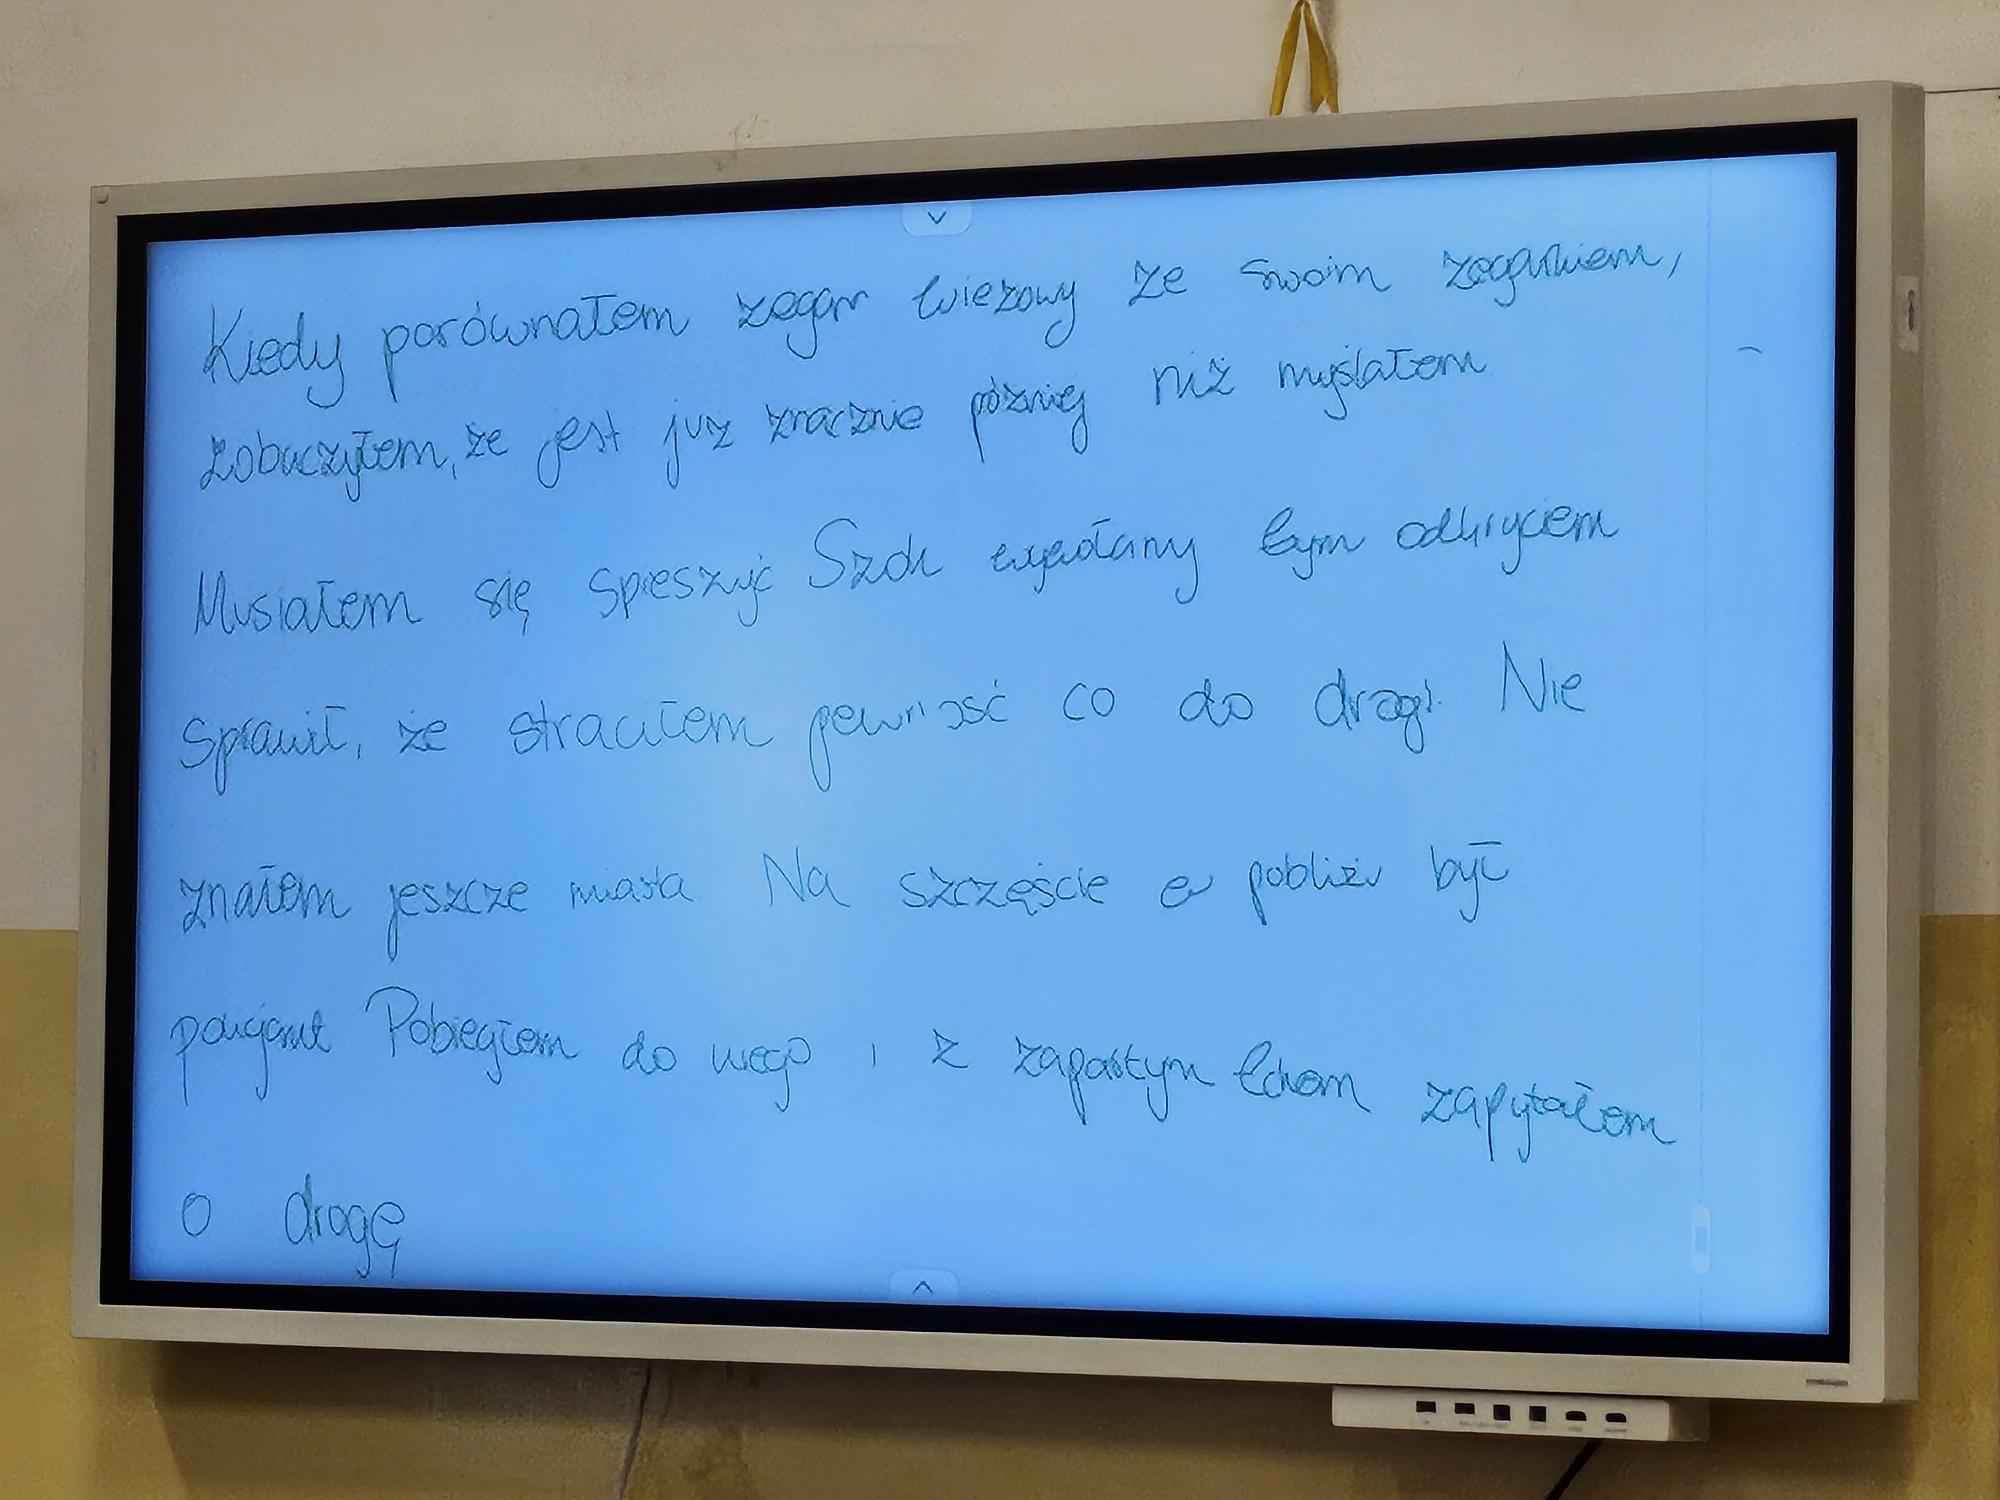 Kiedy porównałem zegar wieżowy ze swoim zegarkiem,
zobaczyłem, że jest już znacznie później niż myślałem
Musiałem się spieszyć Szok wywołany tym odkryciem
sprawił, że straciłem pewność co do drogi. Nie
znałem jeszcze miasta Na szczęście w pobliżu był
policjant Pobiegłem do niego i z zapartym tchem zapytałem
o drogę